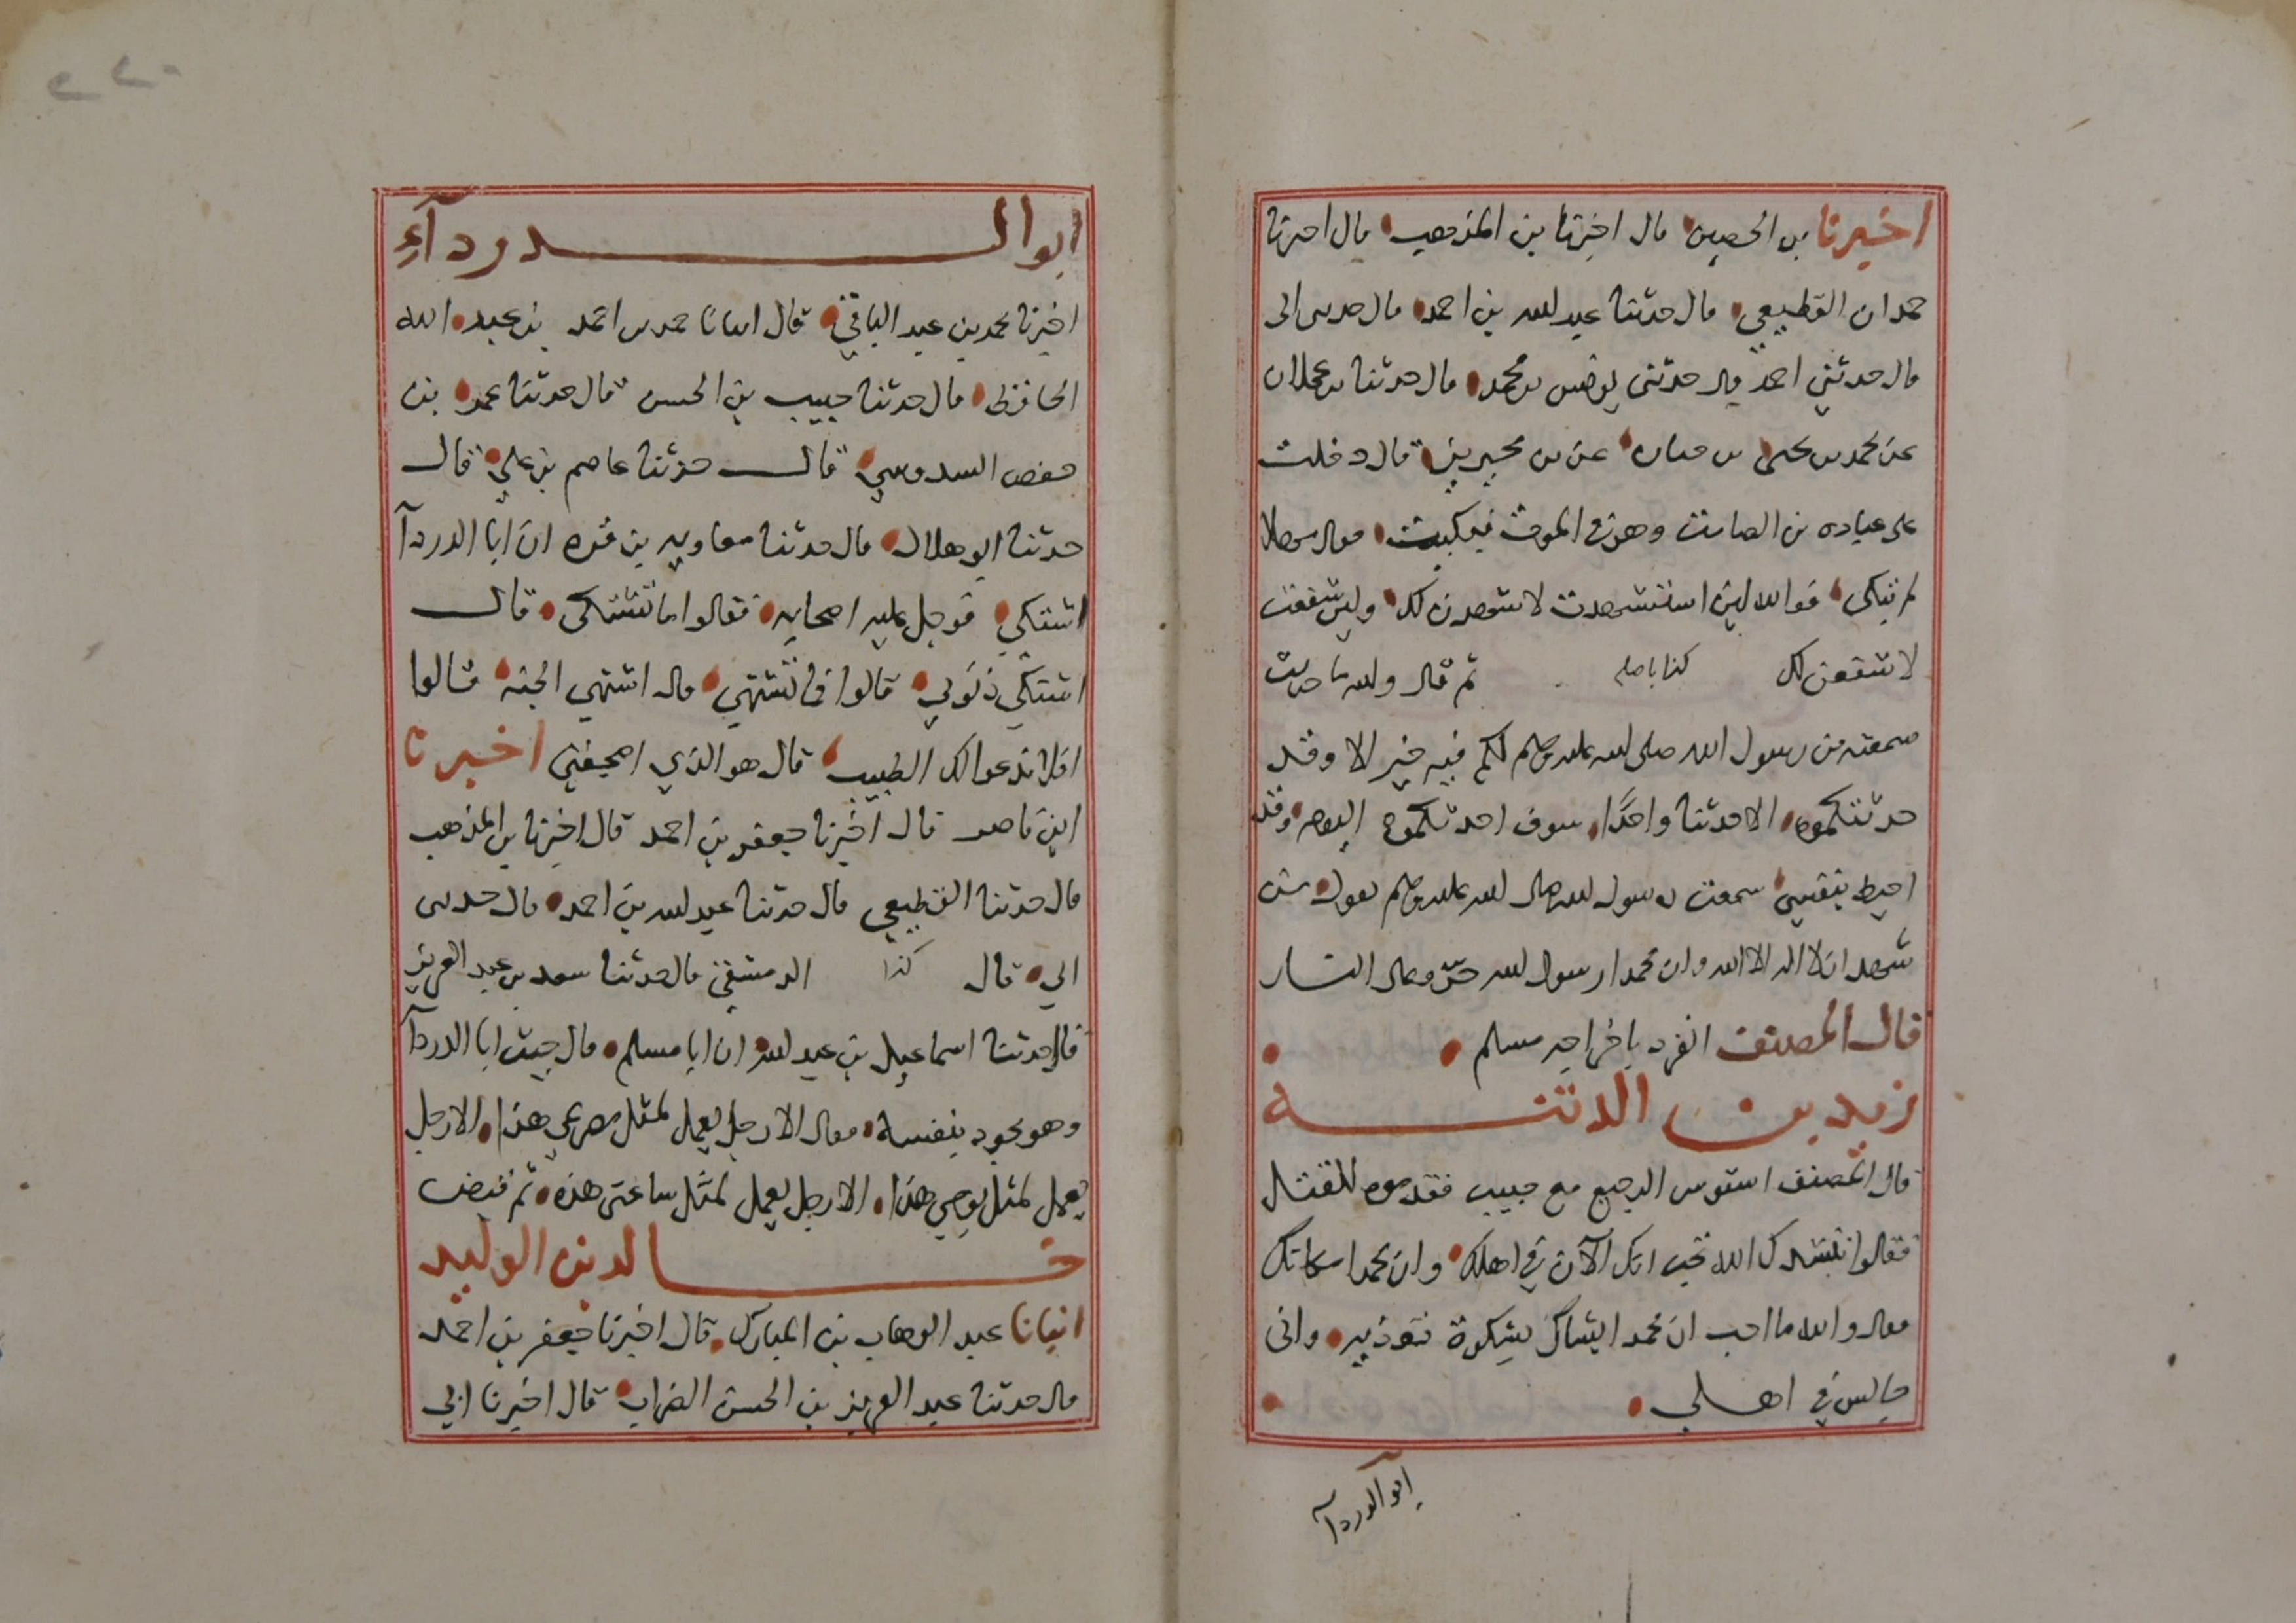 اخبرنا بن الحصين قال اخبرنا بن المذهب قال اخبرنا
حمدان القطيعي قال حدثنا عبد الله بن احمد قال حدثني ابي
قال حدثني احمد قال حدثني يونس بن محمد قال حدثنا بن عجلان
عن محمد بن يحيى بن حبان عن بن محيريز قال دخلت
على عباده بن الصامت وهو في الموت فبكيت فقال مهلا
لم تبكي فوالله لين استشهدت لاشهدن لك ولين شفعت
لاشفعن لك كذا باصله ثم قال والله ما حديث
سمعته من رسول الله صلى الله عليه وسلم لكم فيه خير الا وقد
حدثتكموه الا حدثنا واحدًا سوف احدثكموه اليوم وقد
احيط بنفسي سمعت رسول الله صلى الله عليه وسلم يقول من
شهد ان لا اله الا الله وان محمدا رسول الله حرم على النار
قال المصنف انفرد باخراجه مسلم
زيد بن الدثنـه
قال المصنف استوسر الرجيع مع حبيب فقدموه للقتل
فقالوا ننشدك الله تحب انك الآن في اهلك وان محمدا مكانك
فقال والله ما احب ان محمد ايشاك بشكوة تؤذيه واني
جالس في اهلي
ابو الدردآ
ابو الـدردآء
اخبرنا محمد بن عبد الباقي قال انبانا حمد بن احمد بن عبد الله
الحافظ قال حدثنا حبيب بن الحسن قال حدثنا عمر بن
حفص السدوسي قال حدثنا عاصم بن علي قال
حدثنا ابو هلال قال حدثنا معاويه بن قره ان ابا الدردآ
اشتكي فدخل عليه اصحابه فقالوا ما تشتكى قال
اشتكي ذنوبي قالوا فما تشتهي قال اشتهي الجنه قالوا
افلا ندعوا لك الطبيب قال هو الذي اضجعني اخبرنا
ابن ناصر قال اخبرنا جعفر بن احمد قال اخبرنا بن المذهب
قال حدثنا القطيعي قال حدثنا عبد الله بن احمد قال حدثني
ابي قال كذا الدمشقي قال حدثنا سعيد بن عبد العزيز
قال حدثنا اسماعيل بن عبيد الله ان ابا مسلم قال جيت ابا الدردآ
وهو يجود بنفسه فقال الا رجل يعمل لمثل مصرعي هذا الا رجل
يعمل لمثل يومي هذا الا رجل يعمل لمثل ساعتى هذه ثم قبض
خـالد بن الوليد
انبانا عبد الوهاب بن المبارك قال اخبرنا جعفر بن احمد
قال حدثنا عبد العزيز بن الحسن الضراب قال اخبرنا ابي